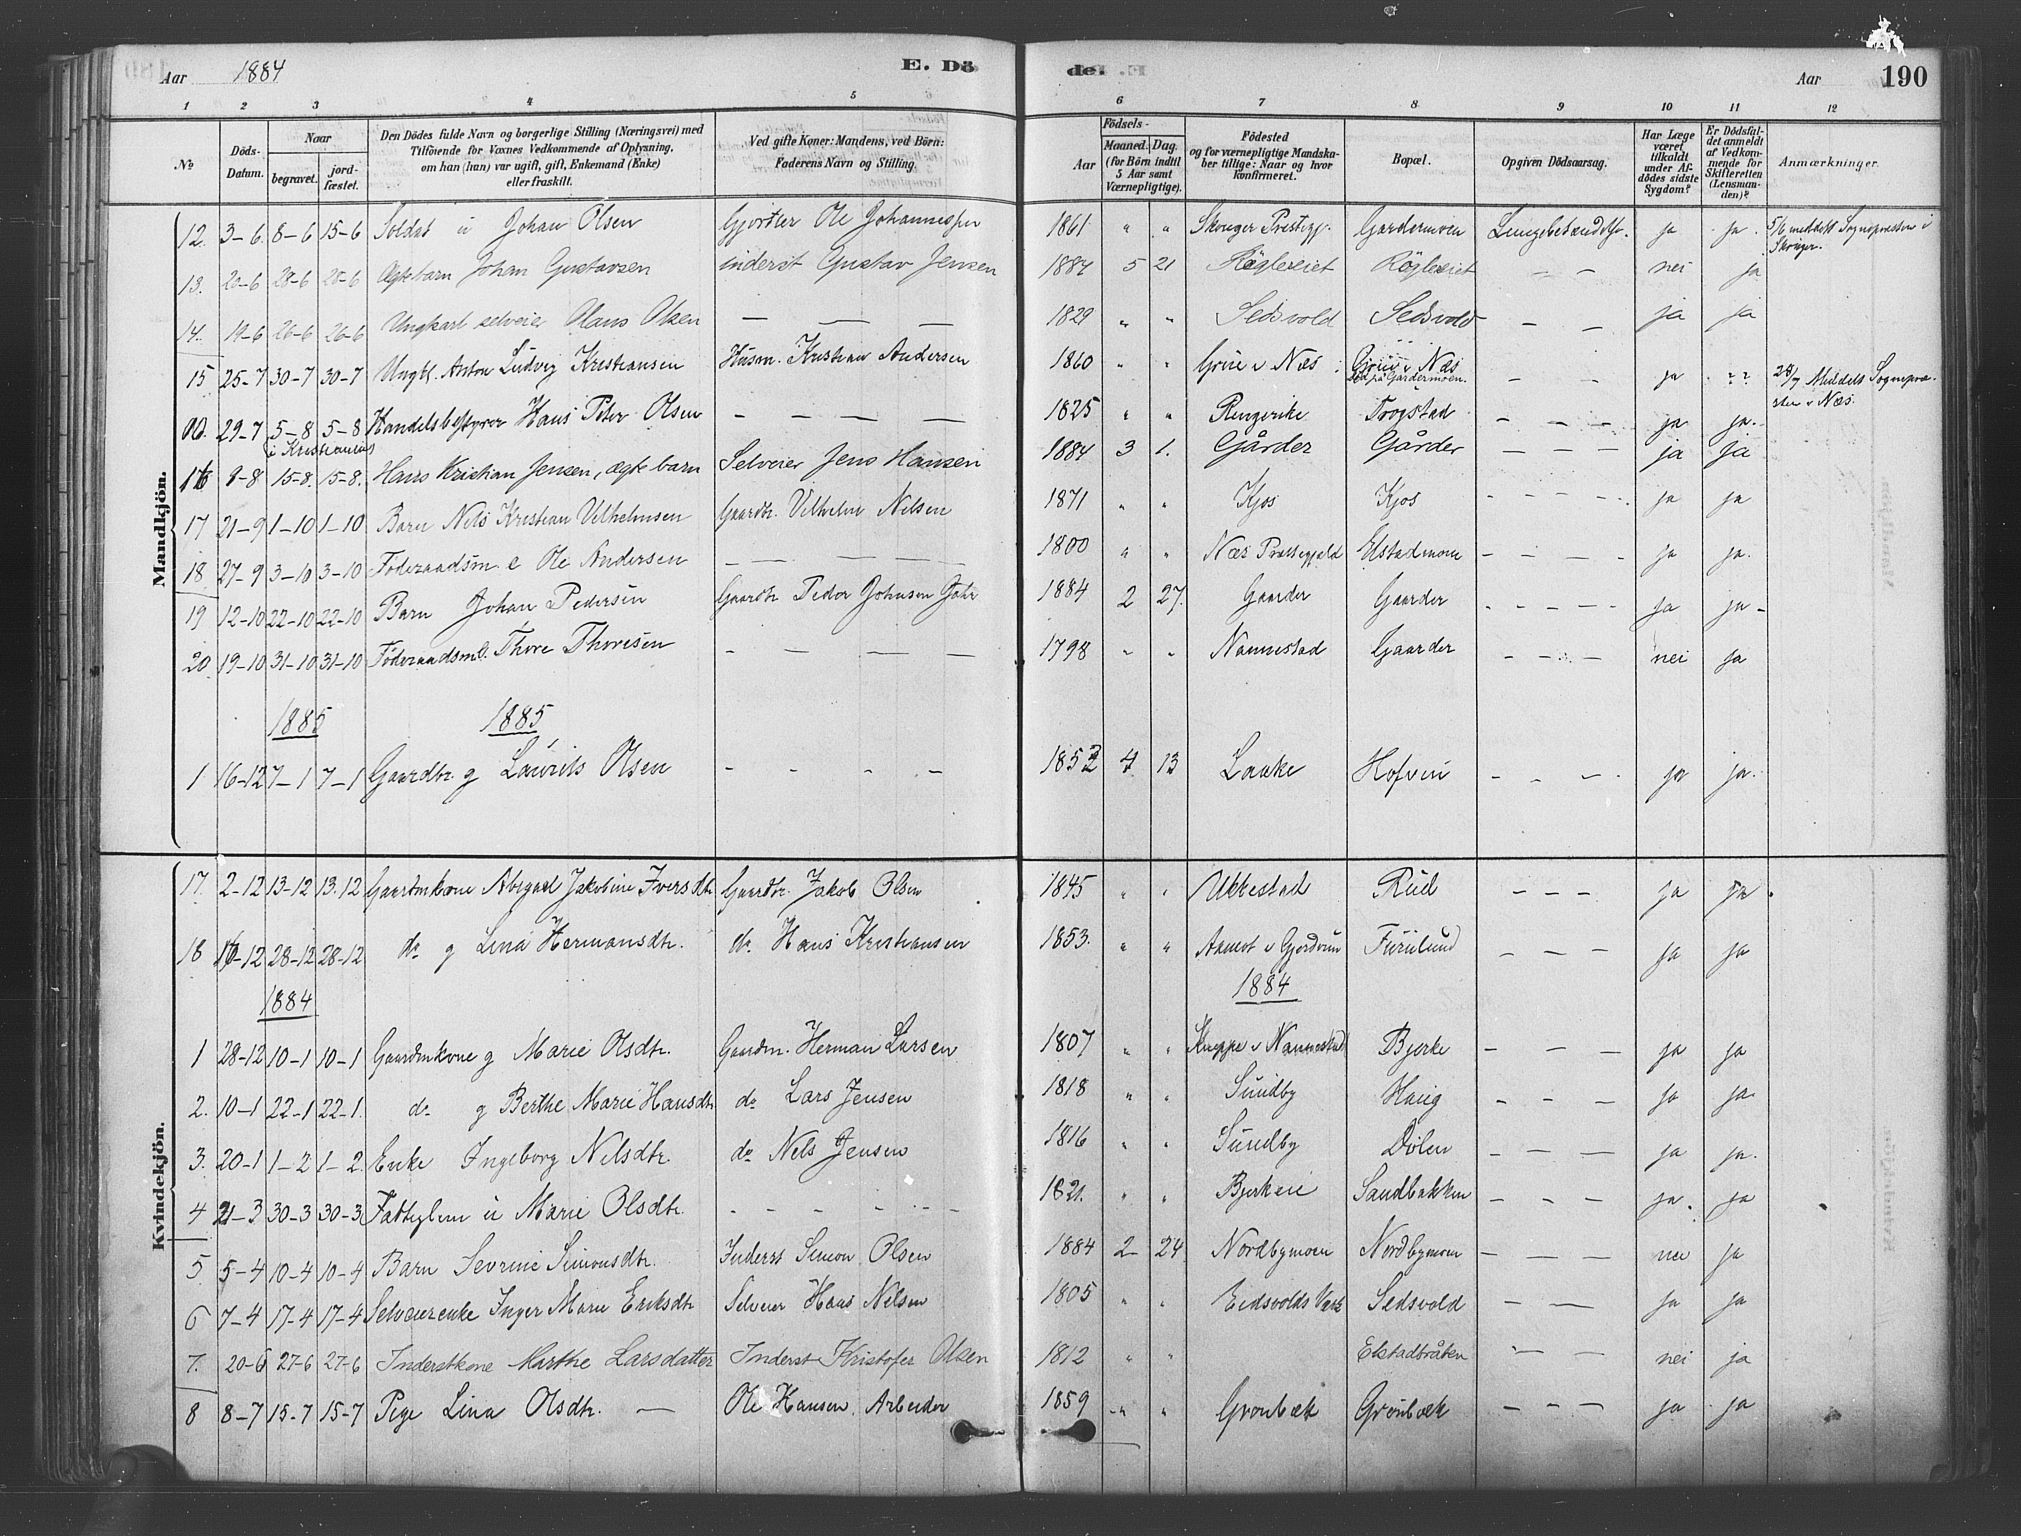 Aar 1884 E. Dö
de. Aar 190
1 2 3 4 5 6 7 8 9 10 11 12
No Döds-Datum. Naar begravet. jord-fæstet. Den Dödes fulde Navn og borgerlige Stilling (Næringsvei) med Tilföiende for Voxnes Vedkommende af Oplysning, om han (hun) var ugift, gift, Enkemand (Enke) eller fraskilt. Ved gifte Koner: Mandens, ved Börn: Faderens Navn og Stilling. Födsels- Aar Maaned. Dag. (for Börn indtil 5 Aar samt Værnepligtige). Födested og for værnepligtige Mandskaber tillige: Naar og hvor konfirmeret. Bopæl. Opgiven Dödsaarsag. Har Læge været tilkaldt under Afdödes sidste Sygdom? Er Dödsfaldet anmeldt af Vedkommende for Skifteretten (Lensmanden)? Anmærkninger.
Mandkjön.
12. 3-6. 8-6 15-6 Soldat u Johan Olsen Gjortler Ole Johannessen 1861 " " Skouger Prestegj. Gardermoen Lungebetændelse. ja ja. 5/6 meddelt Sognepresten i Skouger.
13. 20-6 28-6 28-6 Ægtebarn Johan Gustavsen inderst Gustav Jensen 1884 5 21 Röglereiet Röglereiet — — nei ja
14. 19-6 26-6 26-6 Ungkarl selveier Hans Olsen — — — 1829 " " Sedsvold Sedsvold — — ja ja
15 25-7 30-7 30-7 Ungk. Anton Ludvig Kristiansen Husm. Kristian Andersen 1860 " " Grue v Næs Grue v Næs död på Gardermoen. — — ja ?? 28/7 Meddelt Sognepresten v Næs.
29-7 5-8 5-8 i Kristiania Handelsbestyrer Hans Peter Olsen — — — — 1825 " " Ringerike Trogstad — — — ja ja.
16 9-8 15-8. 15-8. Hans Kristian Jensen, ægte barn Selveier Jens Hansen 1884 3 1. Gårder Gårder — — — ja ja
17 21-9 1-10 1-10 Barn Nils Kristian Vilhelmsen Gaardbr. Vilhelm Nilsen 1871 " " Kjos Kjos - - - - ja ja
18 27-9 3-10 3-10 Föderaadsm. e Ole Andersen — — — — 1800 " " Næs Prestegjeld Elstadmoen - — — — ja ja.
19 12-10 22-10 22-10 Barn Johan Pedersen Gaardbr Peder Johnsen 1884 2 27. Gaarder Gaarder - - - - - ja ja-
20. 19-10 31-10 31-10 Föderaadsm e. Thore Thoresen - — — — 1798 " " Nannestad Gaarder — — — nei ja
1885 1885
1 16-12 7-1 7-1 Gaardbr. g Laurits Olsen - - - — 1852 4 13 Laake Hofvin - — - — ja ja.
Kvindekjön.
17. 2-12 13-12 13.12 Gaardmkone Abigael Jakobine Iversdtr Gaardbr. Jakob Olsen 1845 " " Ukkestad Rud — — — ja ja.
18 16-12 28-12 28-12 do g Lina Hermansdtr. do Hans Kristiansen 1853. " " Aamot v Gjerdrum Furulund — — — ja ja
1884 1884
1 28-12 10-1 10-1 Gaardmkone g Marie Olsdtr. Gaardm. Herman Larsen 1807 " " v Nannestad Bjerke — — — ja ja
2. 10-1 22-1 22-1. do g Berthe Marie Hansdtr. do Lars Jensen 1818 " " Sundby Haug — — — ja ja
3. 20-1 1-2 1-2. Enke Ingeborg Nilsdtr. do Nels Jensen 1816 " " Sundby Dölen — — — ja ja.
4 21-3 30-3 30-3 Fattiglem u Marie Olsdtr. - - - - - - 1821. " " Bjerkeie Sandbakken — — — ja. ja
5. 5-4 10-4 10-4 Barn Severine Simonsdtr. Inderst Simon Olsen 1884 2 24 Nordbymoen Nordbymoen — — — nei ja
6 7-4 17-4 17-4 Selveierenke Inger Marie Eriksdtr Selveier Hans Nilsen 1805 " " Eidsvolds Værk Sedsvold — — ja ja
7. 20-6 27-6 27-6 Inderstkone Marthe Larsdatter Inderst Kristofer Olsen 1812 " " Elstadbråten — — nei ja
8 8-7 15-7 15-7 Pige Lina Olsdtr. — Ole Hansen Arbeider 1859 " " Grönbæk Grönbæk — — — ja ja